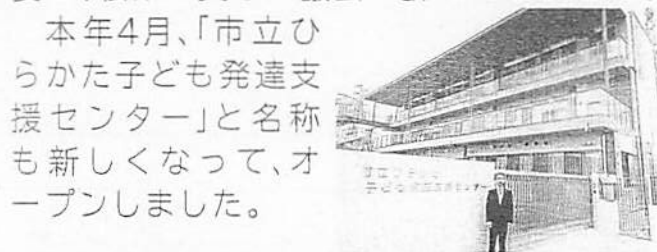 本年4月、「市立ひ
らかた子ども発達支
援センター」と名称
も新しくなって、オ
ープンしました。